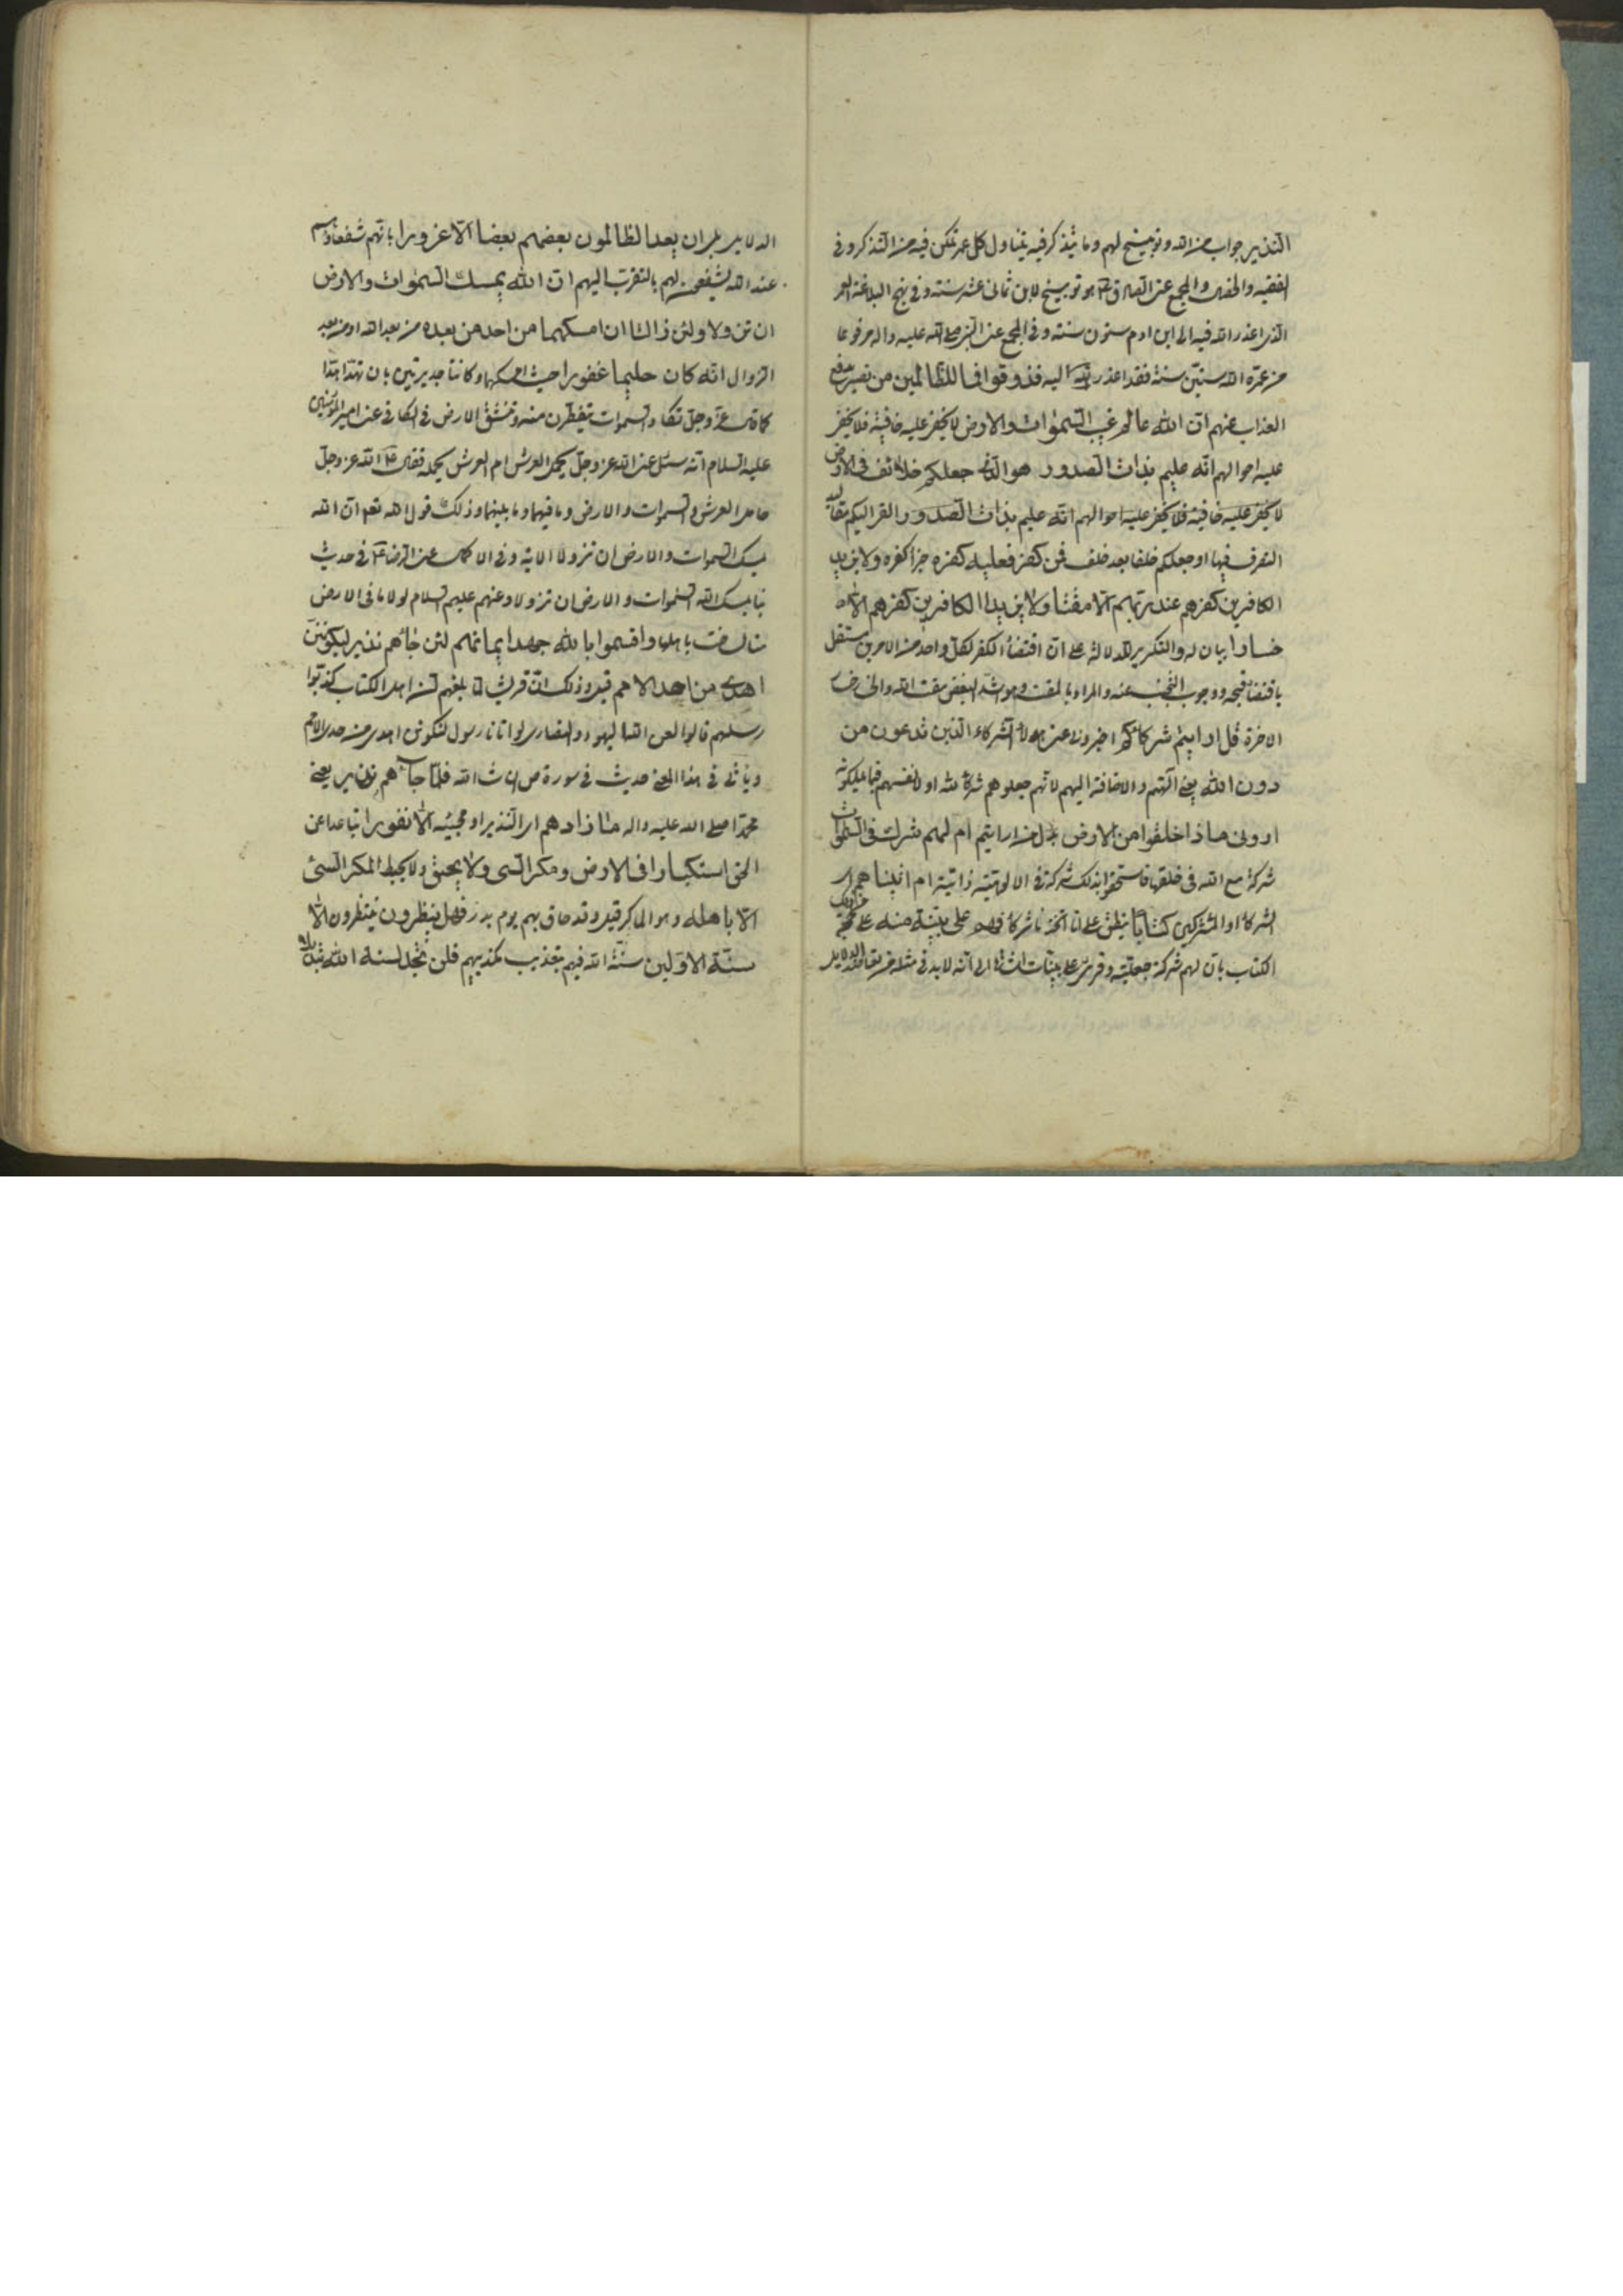 النذير جواب من الله وتوبيخ لهم وما يتذكر فيه يتناول كل عمر تمكن فيه من التذكر وفي
الفقيه والخصال والمجمع عن الصادق ع هو توبيخ لابن ثماني عشر سنة وفي نهج البلاغة العمر
الذي اعذر الله فيه الى ابن ادم ستون سنة وفي المجمع عن النبي صلى الله عليه واله مرفوعا
من عمره الله ستين سنة فقد اعذر الله اليه فذوقوا فما للظالمين من نصير يدفع
العذاب عنهم ان الله عالم غيب السموات والارض لا يخفى عليه خافية فلا يخفى
عليه احوالهم انه عليم بذات الصدور هو الذي جعلكم خلائف في الارض
لا يخفى عليه خافية فلا يخفى عليه احوالهم انه عليم بذات الصدور القى اليكم مقاليد
التصرف فيها او جعلكم خلفا بعد خلف فمن كفر فعليه كفره جزا كفره ولا يزيد
الكافرين كفرهم عند ربهم الا مقتا ولا يزيد الكافرين كفرهم الا
خسارا بيان له والتكرير للدلالة على ان اقتضاء الكفر لكل واحد من الامرين مستقل
باقتضاء قبحه ووجوب التجنب عنه والمراد بالمقت وهو اشد البغض مقت الله والخسار
الاخرة قل ارايتم شركاءكم اخبروني عن هؤلاء الشركاء الذين تدعون من
دون الله يعني آلهتهم والاضافة اليهم لانهم جعلوهم شركاء لله او لانفسهم فيما يملكونه
اروني ماذا خلقوا من الارض بدل من ارايتم ام لهم شرك في السموات
شركة مع الله في خلقها فاستحقوا بذلك شركة في الالوهية ذاتية ام اتيناهم اي
الشركاء او المشركين كتابا ينطق على انا اتخذنا شركاء فهم على بينة منه على حجة من ذلك
الكتاب بان لهم شركة جعلية وقرئ على بينات اشارة الى انه لا بد في مثله من تعاضد الدلايل
الدلايل بل ان يعد الظالمون بعضهم بعضا الا غرورا بانهم شفعاؤهم
عند الله يشفعون لهم بالتقرب اليهم ان الله يمسك السموات والارض
ان تزولا ولئن زالتا ان امسكهما من احد من بعده من بعد الله او من بعد
الزوال انه كان حليما غفورا حيث امسكهما وكانتا جديرتين بان تهدا هدا
كما قال عز وجل تكاد السموات يتفطرن منه وتنشق الارض في الكافي عن امير المؤمنين
عليه السلام انه سئل عن الله عز وجل يحمل العرش ام العرش يحمله فقال ع الله عز وجل
حامل العرش والسموات والارض وما فيهما وما بينهما وذلك قول الله تعالى ان الله
يمسك السموات والارض ان تزولا الاية وفي الاكمال عن الرضا ع في حديث
بنا يمسك الله السموات والارض ان تزولا وعنهم عليهم السلام لولا ما في الارض
منا لساخت باهلها واقسموا بالله جهد ايمانهم لئن جاءهم نذير ليكونن
اهدى من احدى الامم قيل وذلك ان قريشا لما بلغهم ان اهل الكتاب كذبوا
رسلهم قالوا لعن الله اليهود والنصارى لو اتانا رسول لنكونن اهدى من احدى الامم
وياتي في هذا المعنى حديث في سورة ص ان شاء الله فلما جاءهم نذير يعني
محمدا صلى الله عليه واله ما زادهم اي النذير او مجيئه الا نفورا تباعدا عن
الحق استكبارا في الارض ومكر السيئ ولا يحيق ولا يحيط المكر السيئ
الا باهله وهو الماكر قيل وقد حاق بهم يوم بدر فهل ينظرون ينتظرون الا
سنة الاولين سنة الله فيهم بتعذيب مكذبيهم فلن تجد لسنة الله تبديلا